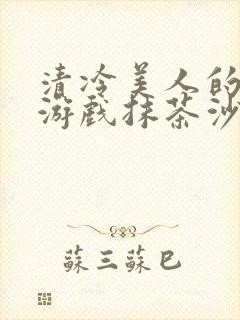 清冷美人的
游戲抹茶沙
蘇三蘇巳